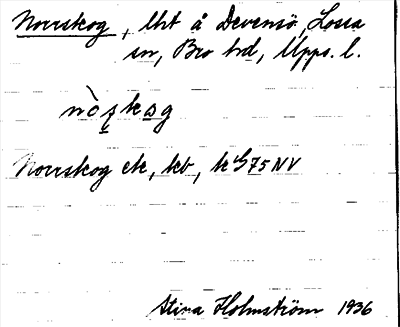 Norrskog, lht å Devensö, Lossa
sn, Bro hd, Upps. l.
nòʂkɷg
Norrskog ek, kb, k G75 NV
Stina Holmström 1936